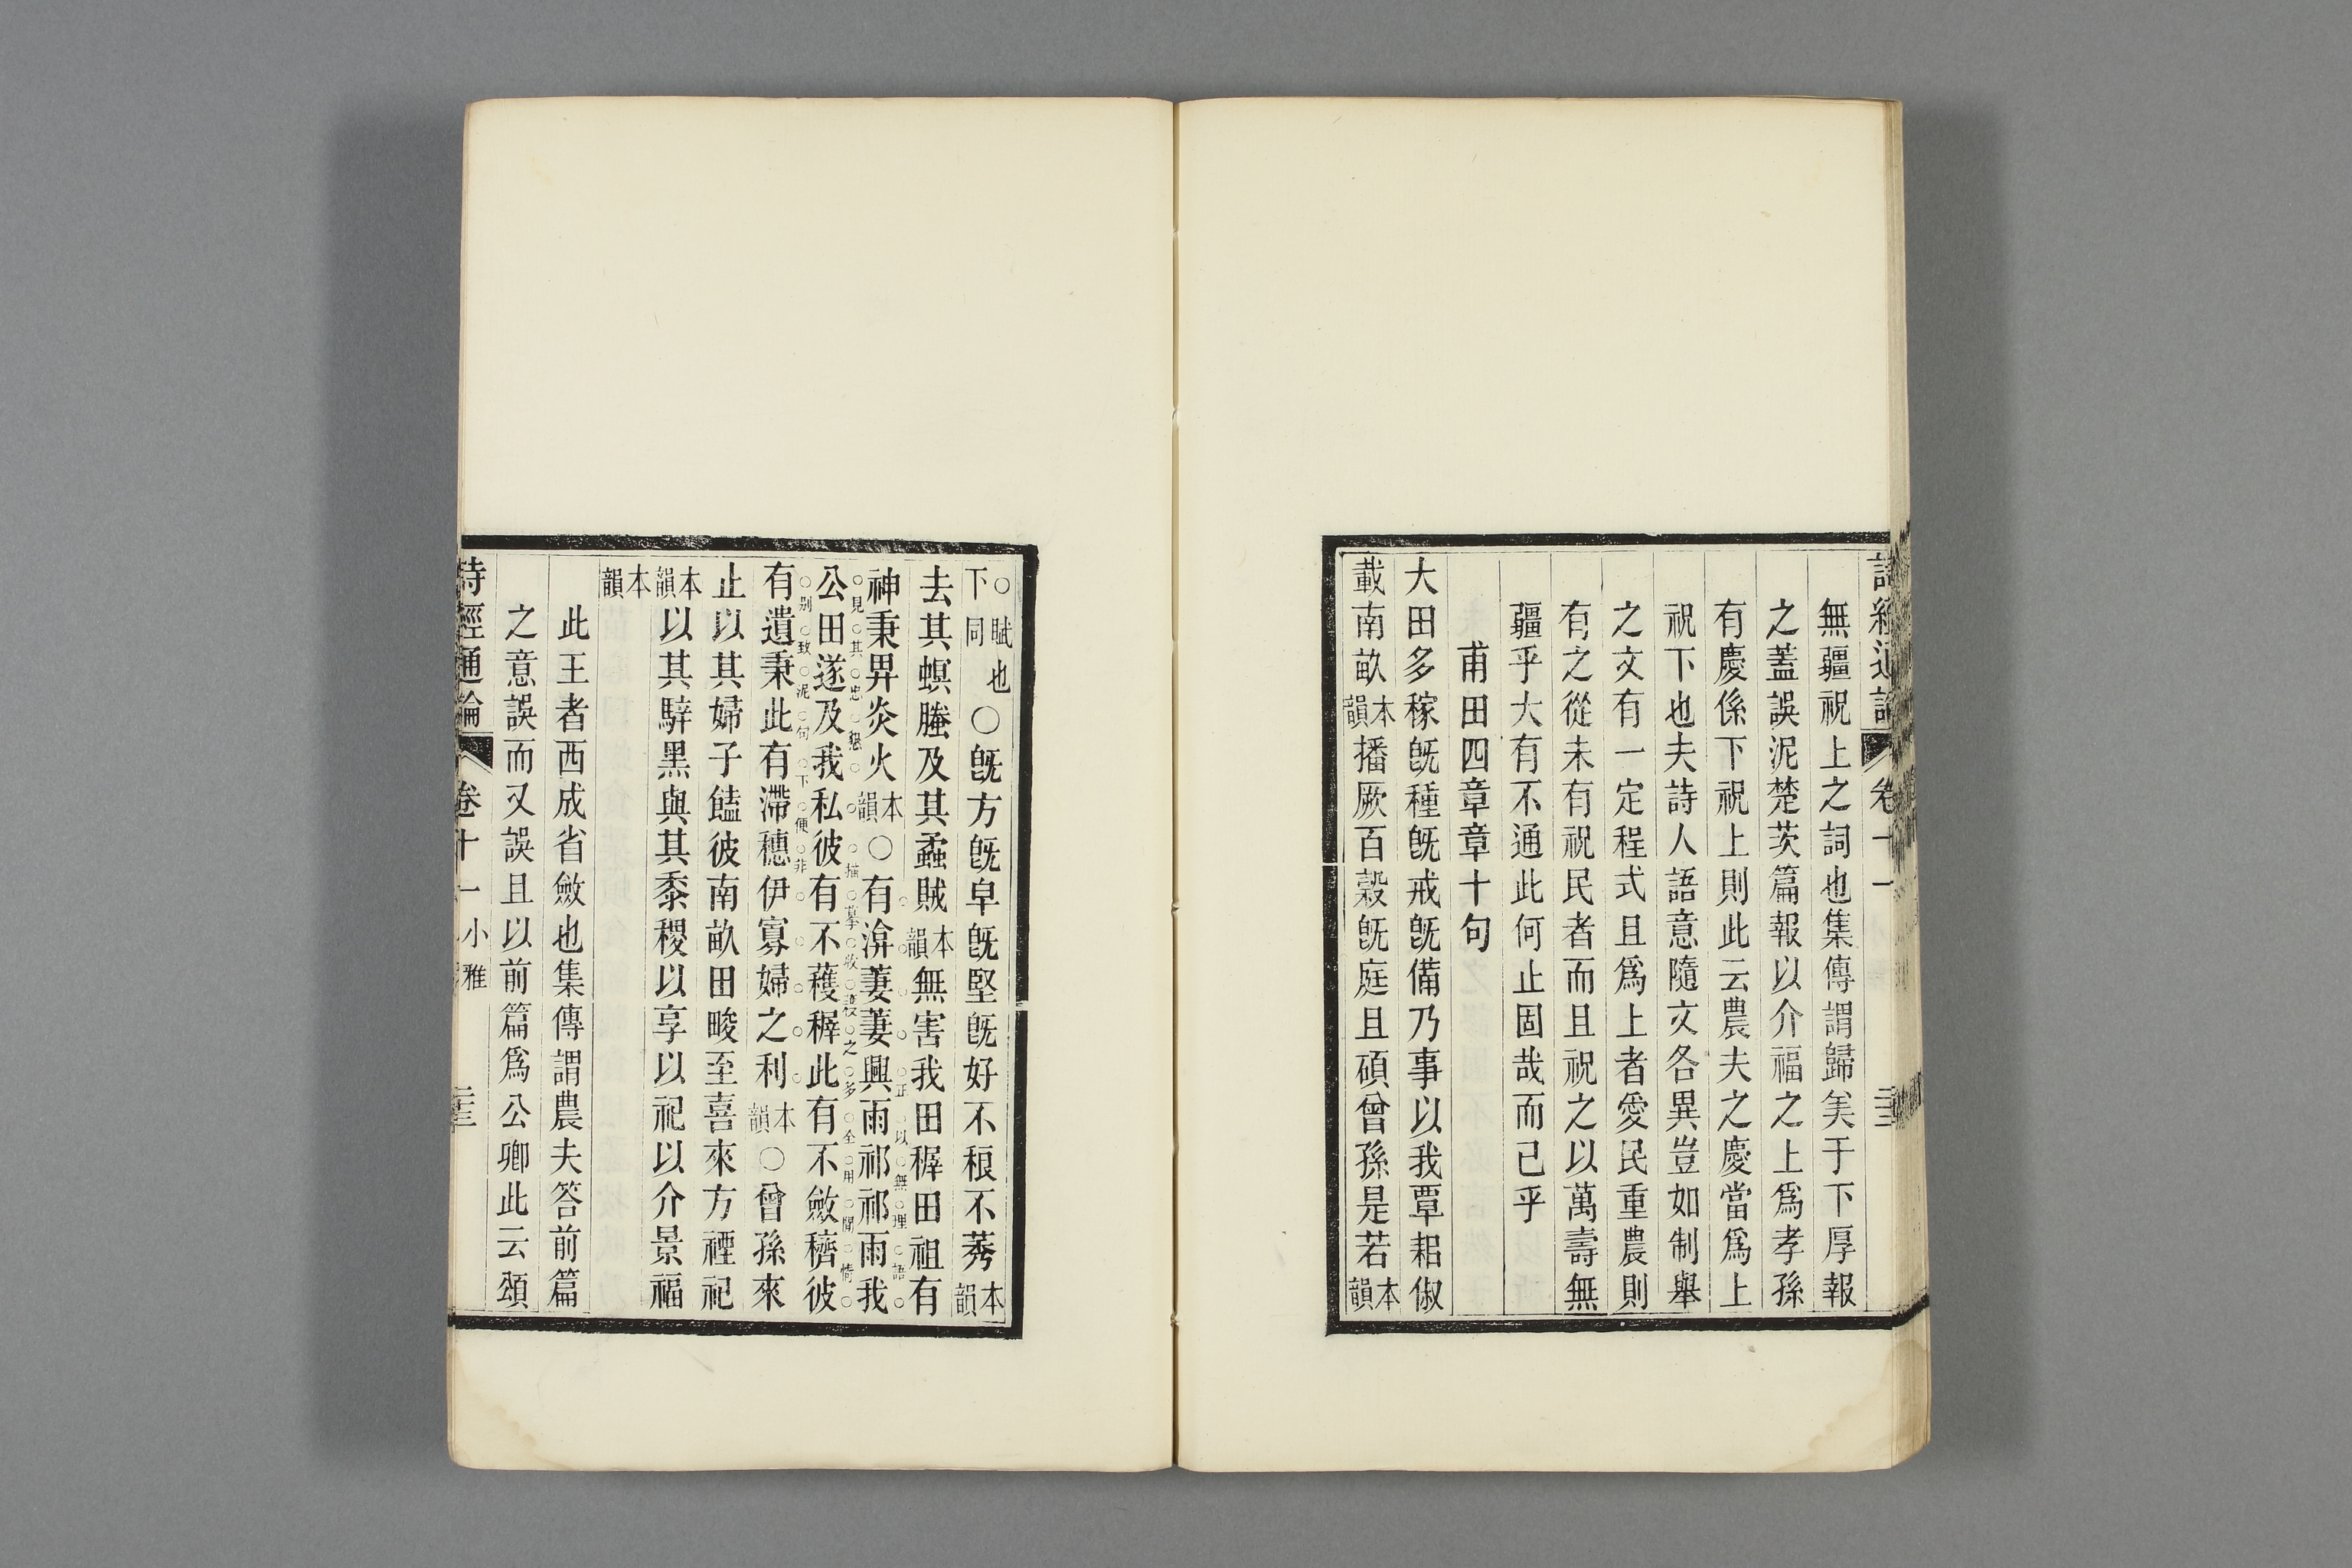 詩經通論 卷十一
無疆祝上之詞也集傳謂歸美于下厚報
之蓋誤泥楚茨篇報以介福之上爲孝孫
有慶係下祝上則此云農夫之慶當爲上
祝下也夫詩人語意隨文各異豈如制舉
之文有一定程式且爲上者愛民重農則
有之從未有祝民者而且祝之以萬壽無
疆乎大有不通此何止固哉而已乎
甫田四章章十句
大田多稼旣種旣戒旣備乃事以我覃耜俶
載南畝本韻播厥百穀旣庭且碩曾孫是若本韻
○賦也下同○旣方旣皁旣堅旣好不稂不莠本韻
去其螟螣及其蟊賊本韻無害我田穉田祖有
正以無理語
神秉畀炎火本韻○有渰萋萋興雨祁祁雨我
見其忠懇 描摹收穫之多全用閒情
公田遂及我私彼有不穫穉此有不斂穧彼
別致泥句下便非
有遺秉此有滯穗伊寡婦之利本韻○曾孫來
止以其婦子饁彼南畝田畯至喜來方禋祀
本韻以其騂黑與其黍稷以享以祀以介景福
本韻
此王者西成省斂也集傳謂農夫答前篇
之意誤而又誤且以前篇爲公卿此云頌
詩經通論 卷十一 小雅